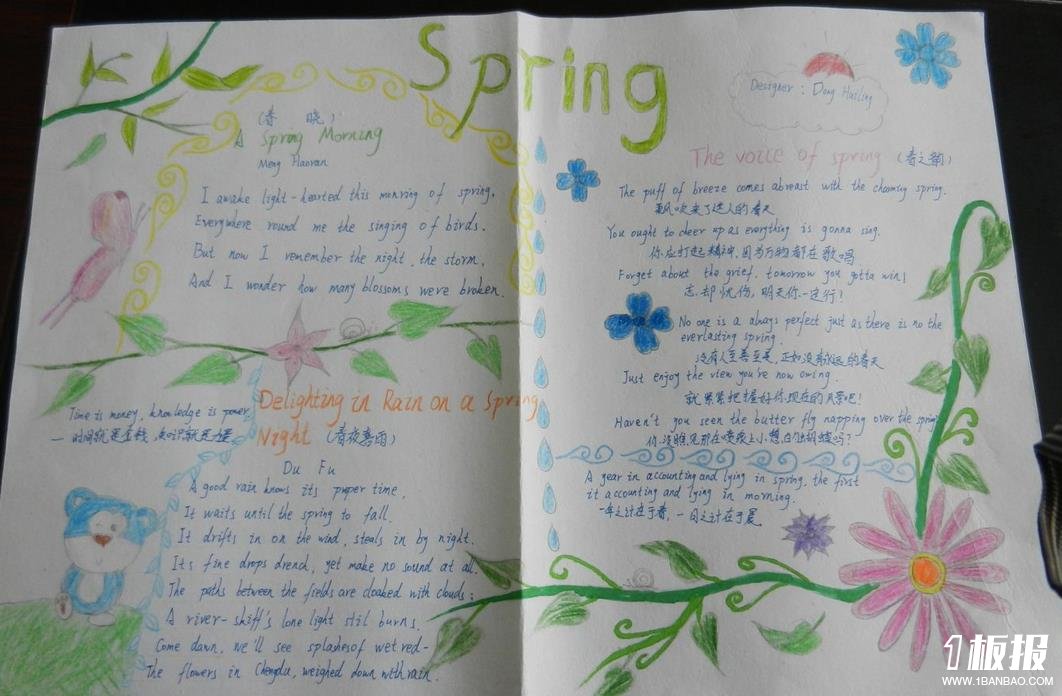 Spring
Designer : Dong Huiling
(春 晓)
A Spring Morning
Meng Haoran
I awake light-hearted this monring of spring,
Everywhere round me the singing of birds.
But now I remember the night, the storm,
And I wonder how many blossoms were broken.
Time is money, knowledge is power
一时间就是金钱,知识就是力量
Delighting in Rain on a Spring
Night (春夜喜雨)
Du Fu
A good rain knows its proper time,
It waits until the spring to fall.
It drifts in on the wind, steals in by night.
Its fine drops drench, yet make no sound at all.
The paths between the fields are cloaked with clouds;
A river-skiff's lone light still burns.
Come dawn, we'll see splashes of wet red-
The flowers in Chengdu, weighed down with rain.
The voice of spring (春之韵)
The puff of breeze comes abreast with the chooming spring.
风吹来了迷人的春天
You ought to cheer up as everything is gonna sing.
你应打起精神,因为万物都在歌唱
Forget about the grief, tomorrow you gotta win!
忘却忧伤,明天你一定行!
No one is a always perfect just as there is no the
everlasting spring.
没有人至善至美,正如没有永远的春天
Just enjoy the view you're now owing.
就紧紧把握好你现在的风景吧!
Haven't you seen the butter fly napping over the spring?
你没瞧见那在喷泉上小憩的蝴蝶吗?
A year in accounting and lying in spring, the first
it accounting and lying in morning.
一年之计在于春,一日之计在于晨
1板报
WWW.1BANBAO.COM